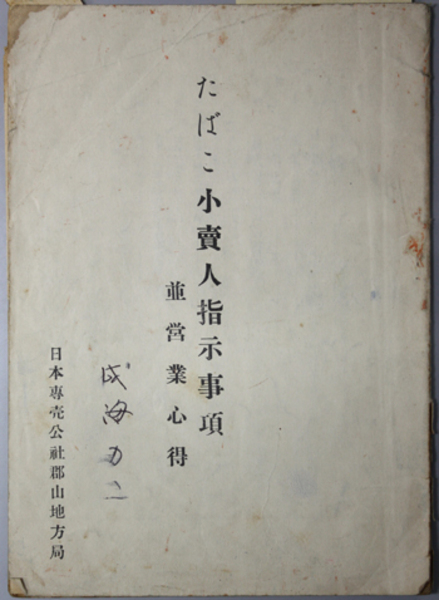 たばこ小賣人指示事項
並営業心得
成海力二
日本專売公社郡山地方局